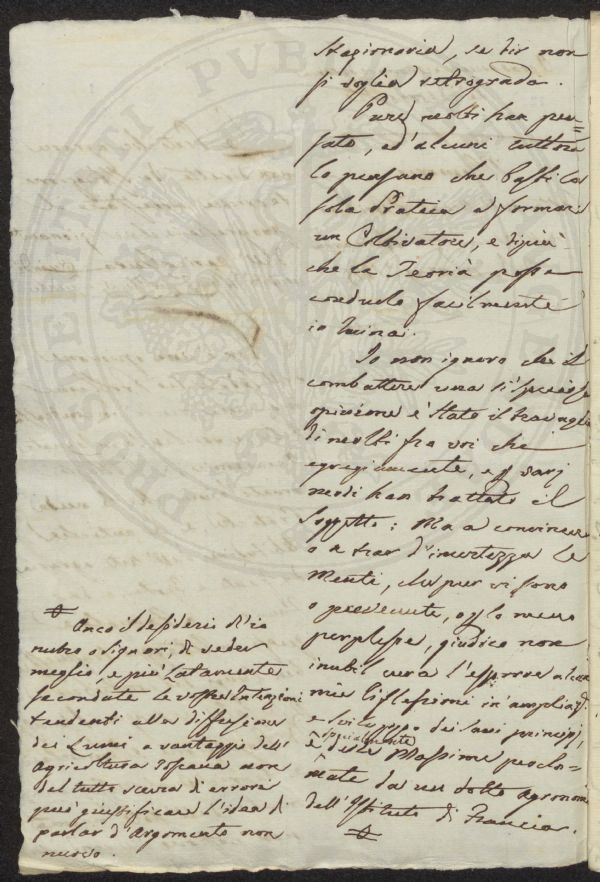 Stazionaria, se dir non
si voglia retrograda.
Pure molti han pen=
sato, ed alcuni tuttora
lo pensano che basti la
sola Pratica a formare
un Coltivatore, e di più
che la Teoria possa
condurlo facilmente
in
Io non ignoro che il
combattere una sì speciosa
opinione è stato il travaglio
di molti fra voi che
egregiamente, e p varj
modi han trattato il
Soggetto: Ma a convincere
o a trar d'incertezza le
Menti, che pur vi sono
o prevenute, o p lo meno
perplesse, giudico non
inutil cura l'esporre alcune
mie riflessioni in ampliaz.
e sviluppo dei savj principj,
e delle specialmente Massime procla=
mate da un dotto Agronomo
dell'Istituto di Francia.
Anco il desiderio ch'io
nutro o Signori, di veder
meglio, e più Latamente
secondate le vostre Intenzioni
tendenti alla diffusione
dei Lumi a vantaggio dell'
Agricoltura Toscana non
del tutto scevra di errori
può giustificare l'idea di
parlar d'Argomento non
nuovo.
PROSPERITATI PUBLICAE